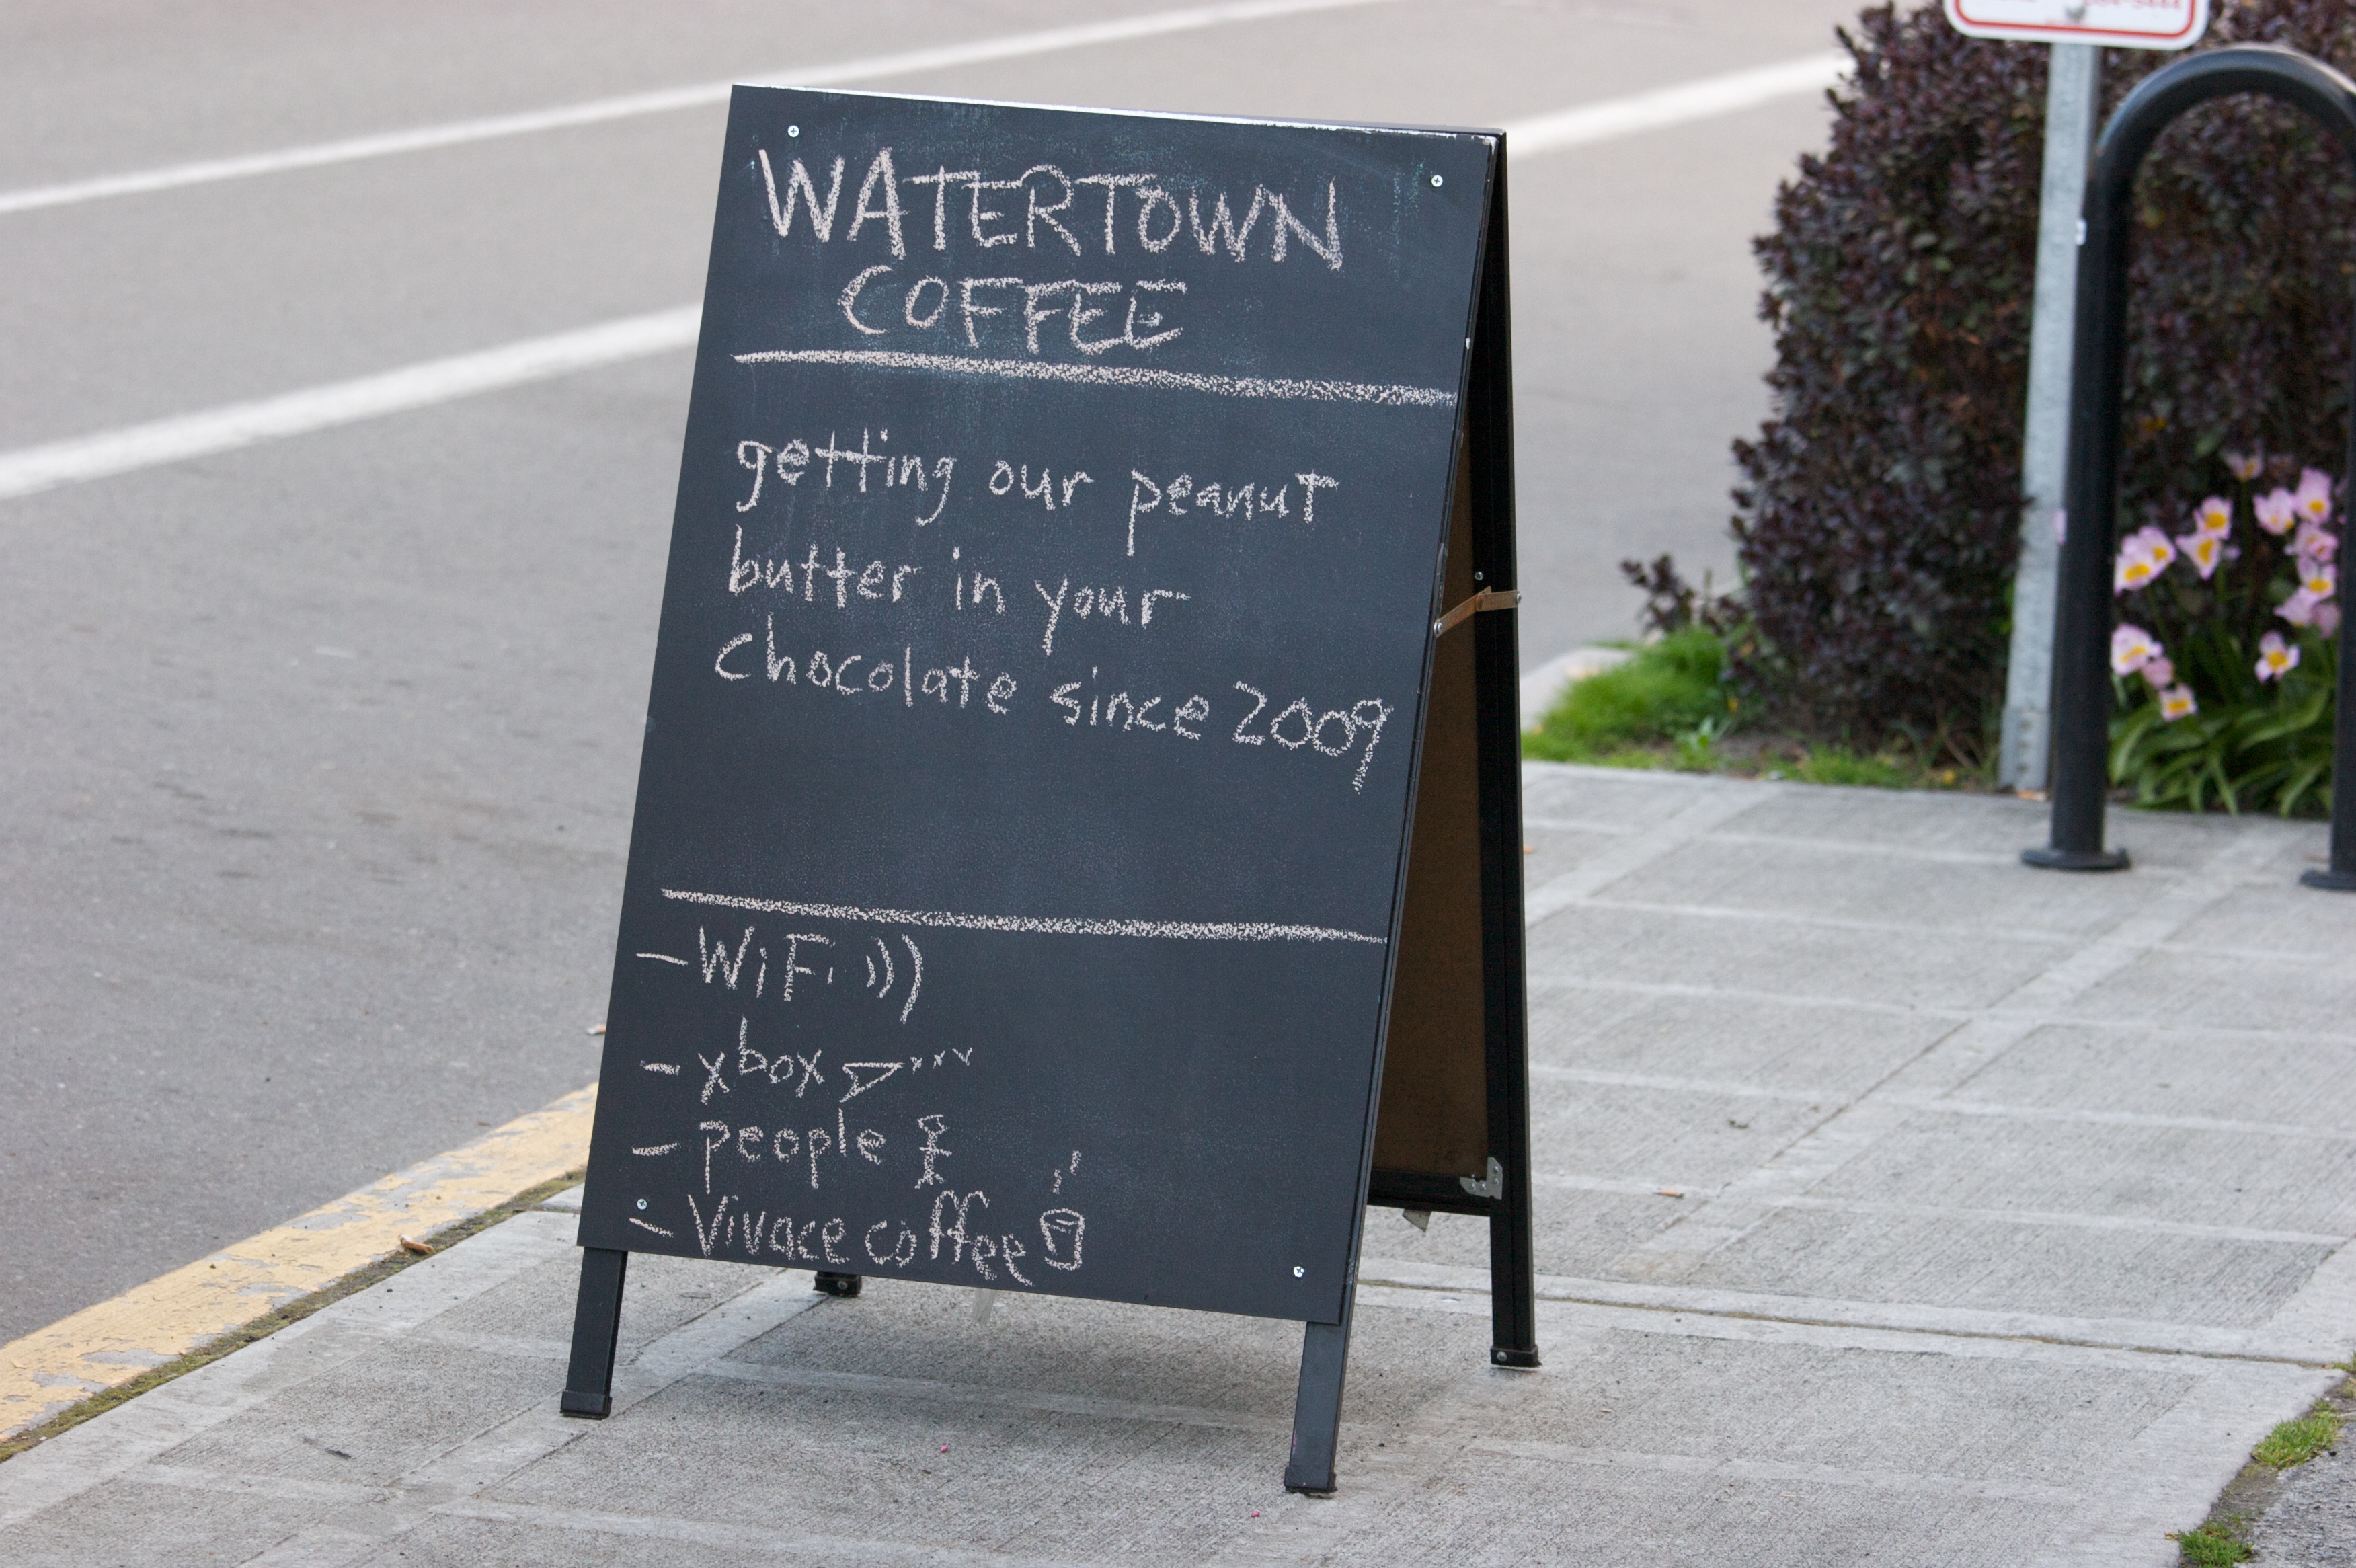 WATERTOWN
COFFEE
getting our peanut
butter in your
chocolate since 2009
- WiFi
- xbox
- people
- Vivace coffee